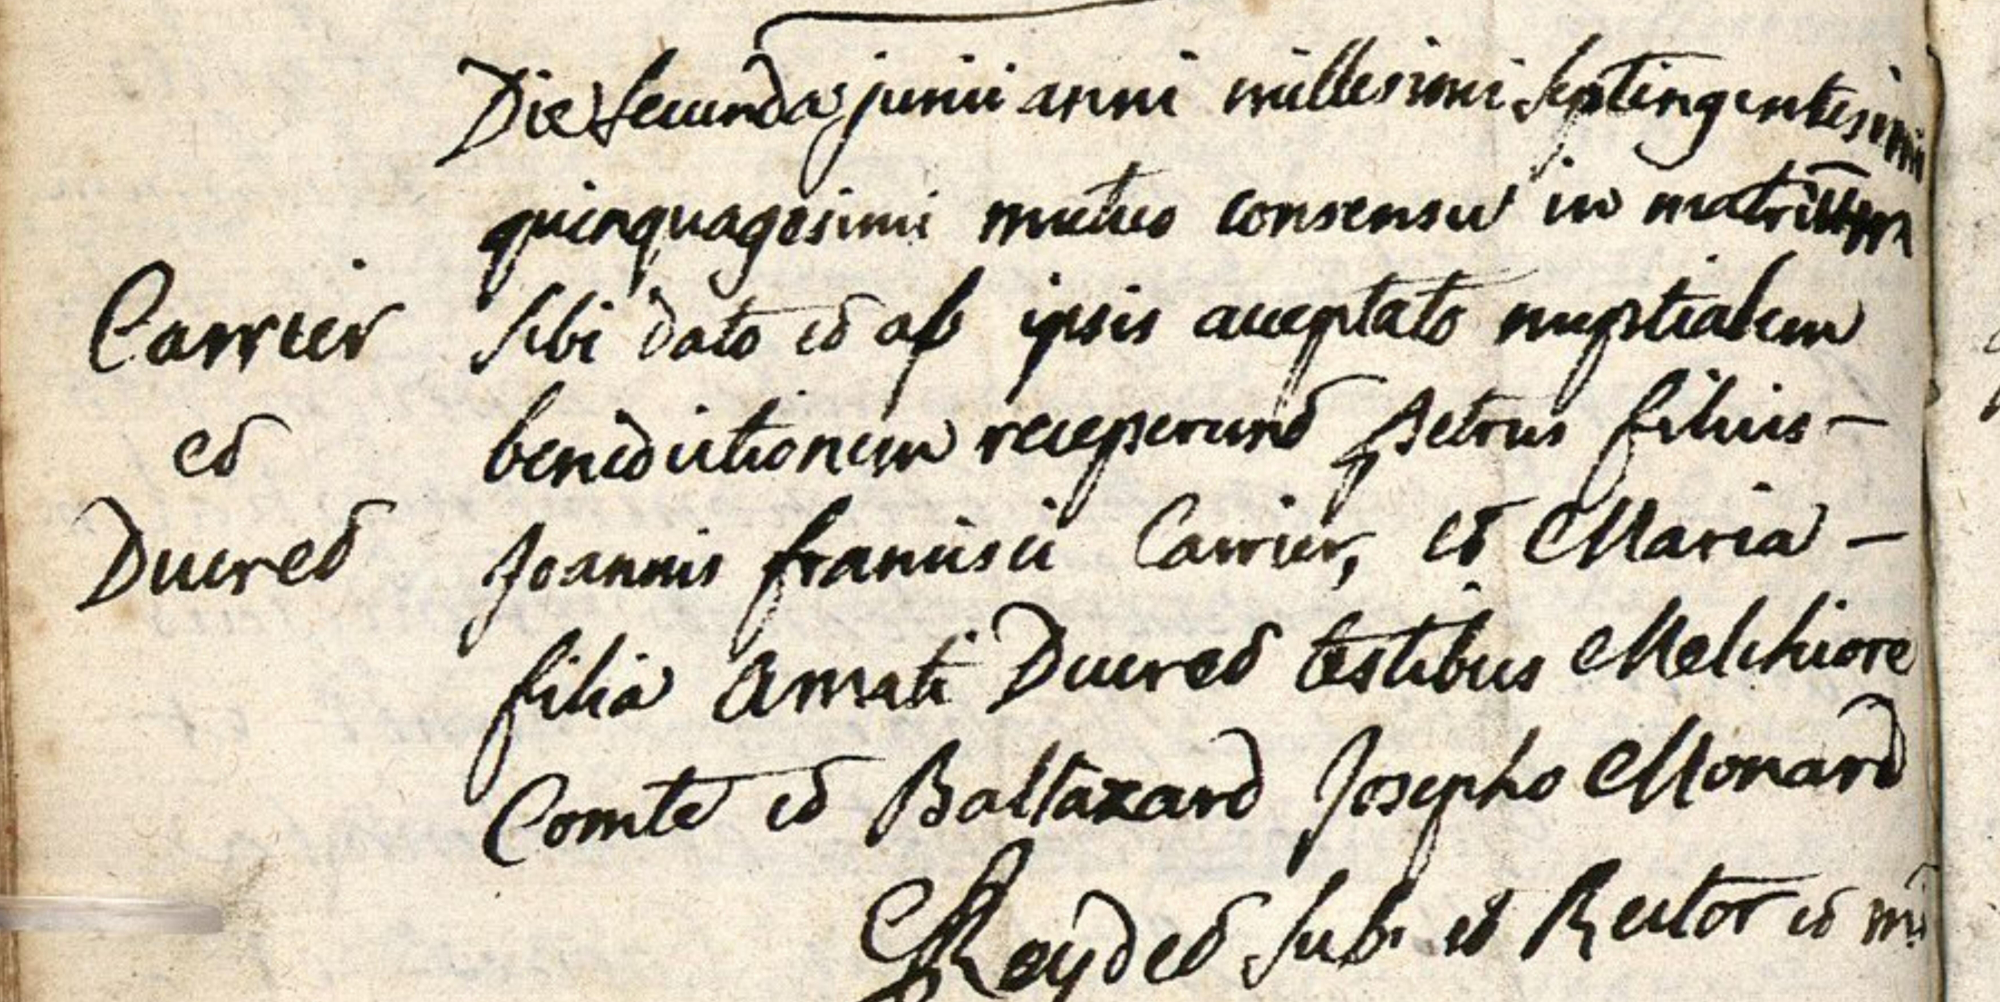 Die secunda junii anni millesimi septingentesimi
quinquagesimi mutuo consensu in matrim
Carrier
sibi dato et ab ipsis acceptato nuptialem
et
benedictionem receperunt Petrus filius -
Ducret
Joannis francisci Carrier, et Maria -
filia Amati Ducret testibus Melchiore
Comte et Baltazard Josepho Monard
Reydet sub. et Rector et